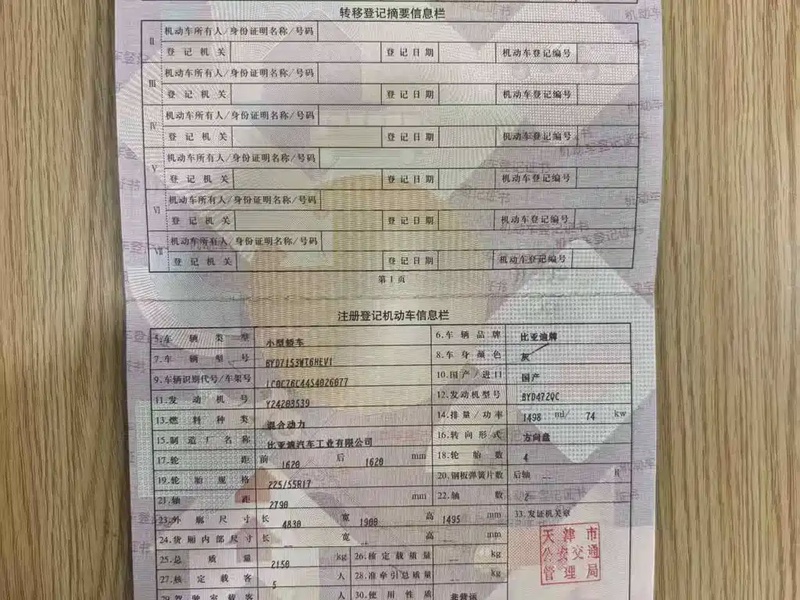 转移登记摘要信息栏
II 机动车所有人/身份证明名称/号码
登记机关 登记日期 机动车登记编号
III 机动车所有人/身份证明名称/号码
登记机关 登记日期 机动车登记编号
IV 机动车所有人/身份证明名称/号码
登记机关 登记日期 机动车登记编号
V 机动车所有人/身份证明名称/号码
登记机关 登记日期 机动车登记编号
VI 机动车所有人/身份证明名称/号码
登记机关 登记日期 机动车登记编号
VII 机动车所有人/身份证明名称/号码
登记机关 登记日期 机动车登记编号
第1页
注册登记机动车信息栏
5.车辆类型 小型轿车 6.车辆品牌 比亚迪牌
7.车辆型号 BYD7153WT6HEV1 8.车身颜色 灰
9.车辆识别代号/车架号 LC0C76C44S4026077 10.国产/进口 国产
11.发动机号 YZ4203539 12.发动机型号 BYD472QC
13.燃料种类 混合动力 14.排量/功率 1498 ml/ 74 kw
15.制造厂名称 比亚迪汽车工业有限公司 16.转向形式 方向盘
17.轮距 前 1620 后 1620 mm 18.轮胎数 4
19.轮胎规格 225/55R17 20.钢板弹簧片数 后轴 -- 片
21.轴距 2790 mm 22.轴数 2
23.外廓尺寸 长 4830 宽 1900 高 1495 mm 33.发证机关章
24.货厢内部尺寸 长 -- 宽 -- 高 -- mm
25.总质量 2150 kg 26.核定载质量 -- kg
27.核定载客 5 人 28.准牵引总质量 -- kg
29.驾驶室载客 人 30.使用性质 非营运
天津市
公安交通
管理局